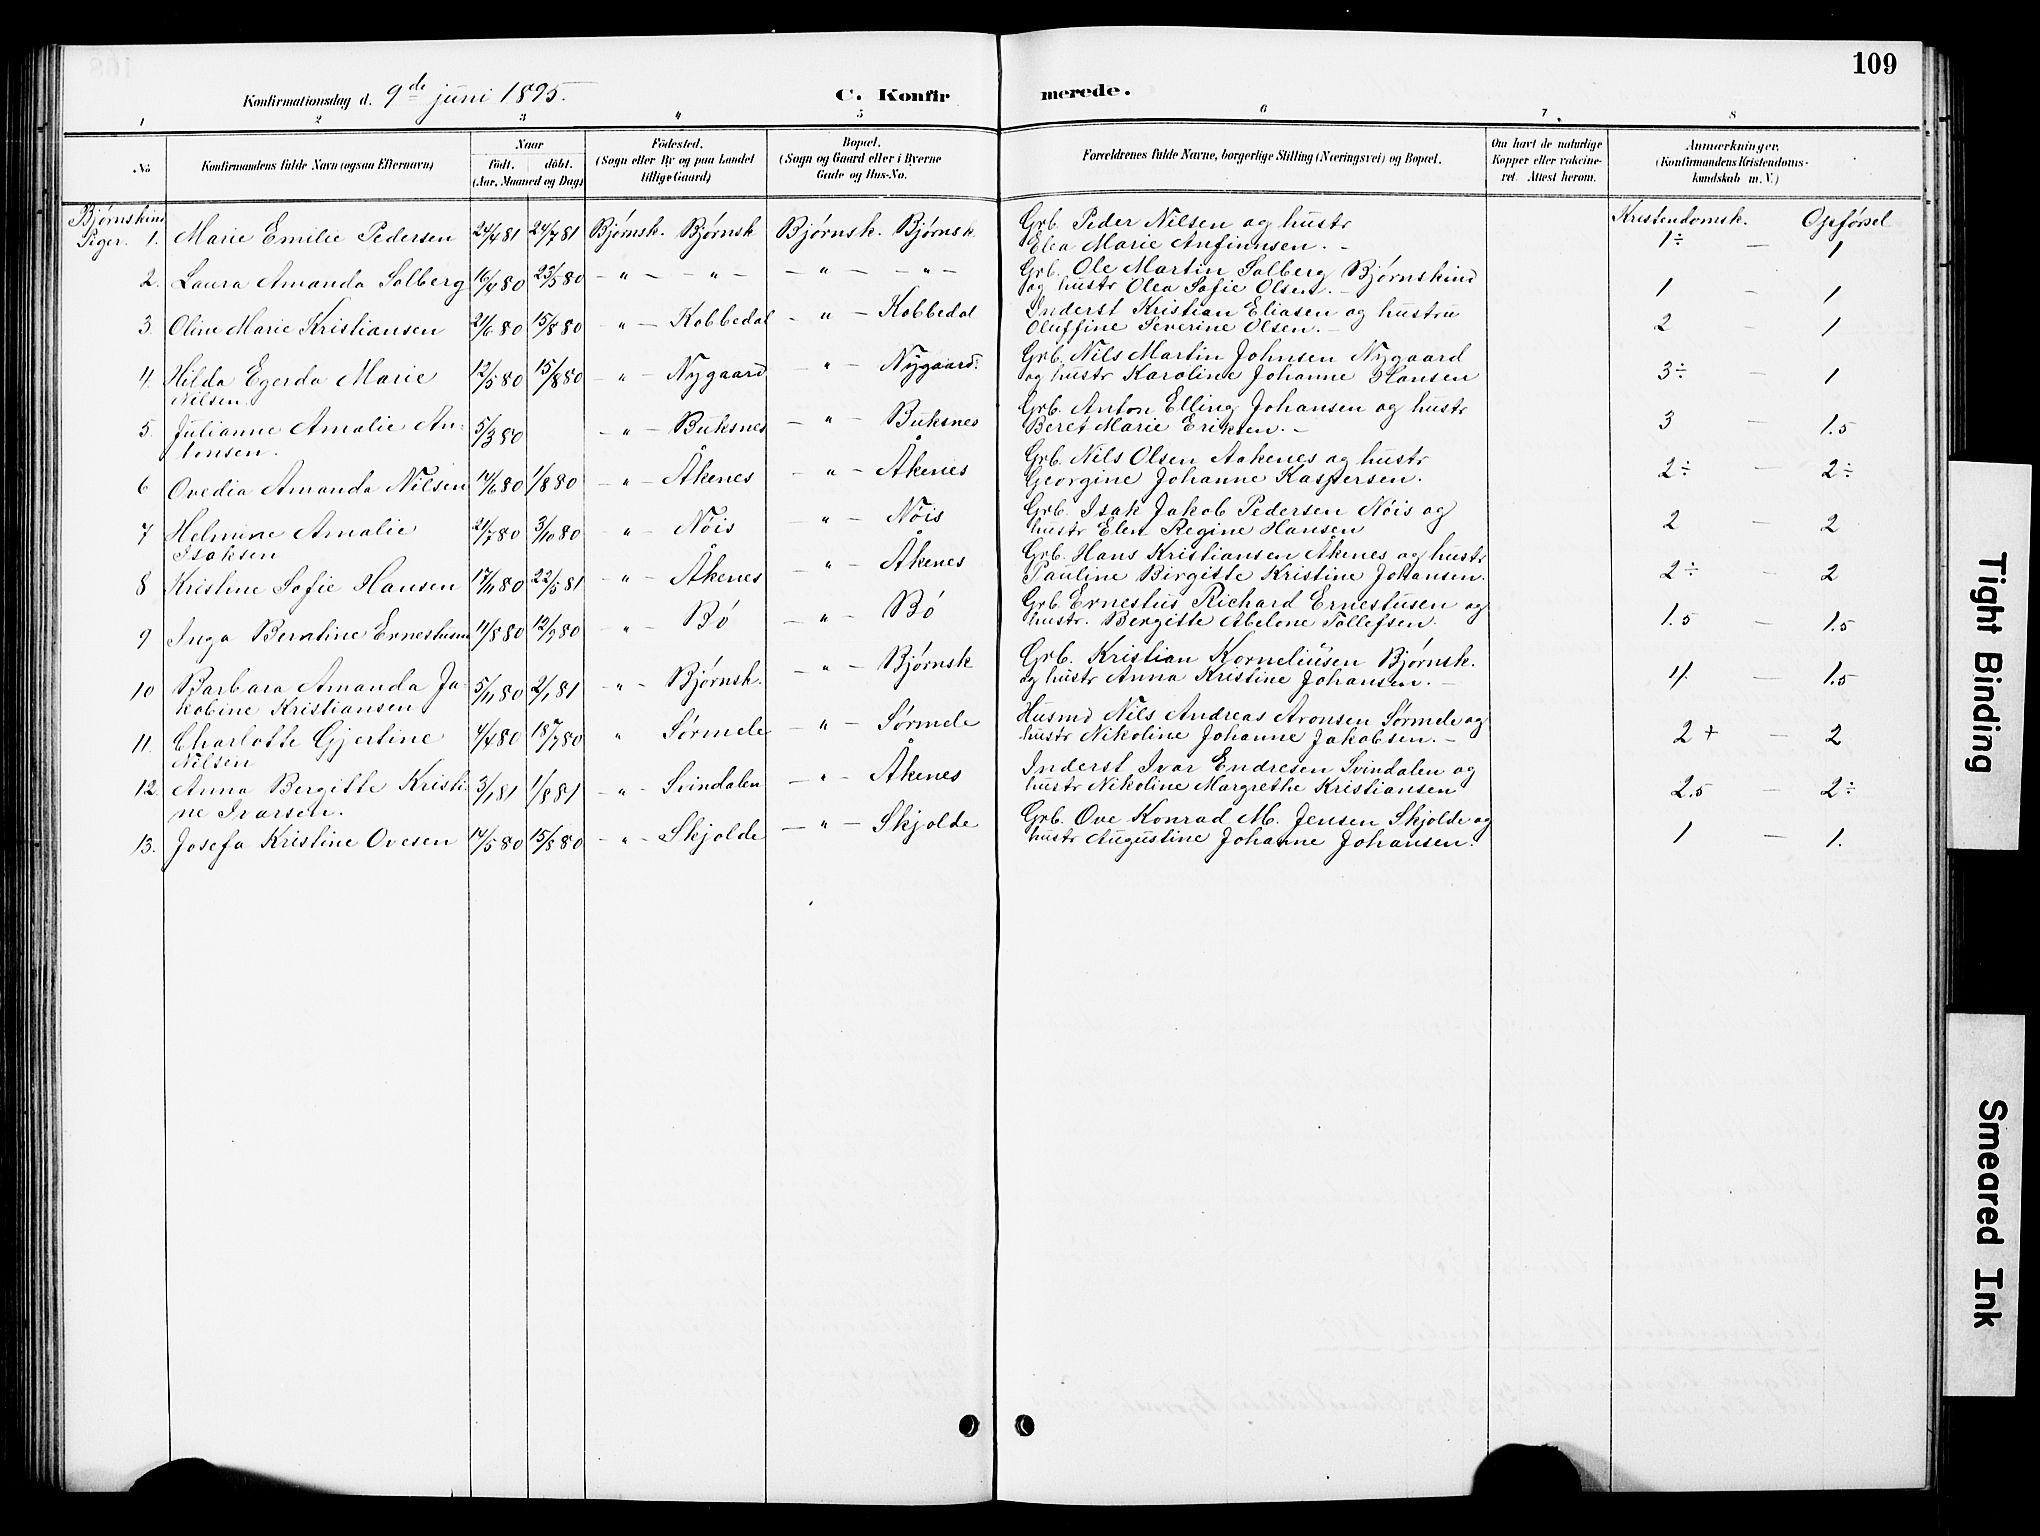 109
Konfirmationsdag d. 9de juni 1895.
C. Konfirmerede.
1 2 3 4 5 6 7 8
No
Konfirmandens fulde Navn (ogsaa Efternavn)
Naar
født. døbt.
(Aar, Maaned og Dag)
Fødested.
(Sogn eller By og paa Landet
tillige Gaard)
Bopæl.
(Sogn og Gaard eller i Byerne
Gade og Hus-No.
Forældrenes fulde Navne, borgerlige Stilling (Næringsvei) og Bopæl.
Om havt de naturlige
Kopper eller vakcine-
ret. Attest herom.
Anmærkninger.
(Konfirmandens Kristendoms-
kundskab m. V.)
Bjørnskind
Piger.
Kristendomsk. Opførsel
1. Marie Emilie Pedersen 24/4 81 24/7 81 Bjørnsk. Bjørnsk Bjørnsk. Bjørnsk. Grb. Peder Nilsen og hustr
Elea Marie Anfinnsen. – 1÷ – 1
2. Laura Amanda Solberg 16/4 80 23/5 80 – " – – " – – " – – " – Grb. Ole Martin Solberg Bjørnskind
og hustr Olea Sofie Olsen. – 1 – 1
3. Oline Marie Kristiansen 21/6 80 15/8 80 – " – Kobbedal – " – Kobbedal Inderst Kristian Eliasen og hustru
Oluffine Severine Olsen. – 2 – 1
4. Hilda Egerda Marie
Nilsen. 12/5 80 15/8 80 – " – Nygaard – " – Nygaard. Grb. Nils Martin Johnsen Nygaard
og hustr Karoline Johanne Hansen 3÷ – 1
5. Julianne Amalie An-
tonsen. 5/3 80 – " – Buksnes – " – Buksnes Grb. Anton Elling Johansen og hustr
Beret Marie Eriksen. – 3 – 1.5
6 Ovedia Amanda Nilsen 14/6 80 1/8 80 – " – Åkenes – " – Åkenes Grb. Nils Olsen Aakenes og hustr
Georgine Johanne Kaspersen. 2÷ – 2÷
7 Helmine Amalie
Isaksen 21/7 80 3/10 80 – " – Nöis – " – Nöis Grb. Isak Jakob Pedersen Nöis og
hustr Elen Regine Hansen 2 – 2
8 Kristine Sofie Hansen 17/11 80 22/5 81 – " – Åkenes – " – Åkenes Grb. Hans Kristiansen Åkenes og hustr
Pauline Birgitte Kristine Johansen. 2÷ – 2
9 Inga Berntine Ernestusen 11/8 80 12/9 80 – " – Bö – " – Bö Grb. Ernestus Richard Ernestusen og
hustr. Bergitte Abelone Tollefsen. 1.5 – 1.5
10 Barbara Amanda Ja-
kobine Kristiansen 5/11 80 2/1 81 – " – Bjørnsk. – " – Bjørnsk Grb. Kristian Korneliusen Bjørnsk.
og hustr Anna Kristine Johansen. – 4. – 1.5
11. Charlotte Gjertine
Nilsen 4/4 80 18/7 80 " Sørmele – " – Sørmele Husmd Nils Andreas Aronsen Sørmele og
hustr Nikoline Johanne Jakobsen. – 2+ – 2
12. Anna Bergitte Kristi-
ne Ivarsen. 3/1 81 1/8 81 – " – Svindalen – " – Åkenes Inderst Ivar Endresen Svindalen og
hustr Nikoline Margrethe Kristiansen 2.5 – 2÷
13. Josefa Kristine Ovesen 14/5 80 15/8 80 – " – Skjolde – " – Skjolde Grb. Ove Konrad M. Jensen Skjolde og
hustr Augustine Johanne Johansen. 1 – 1.
Tight Binding
Smeared Ink